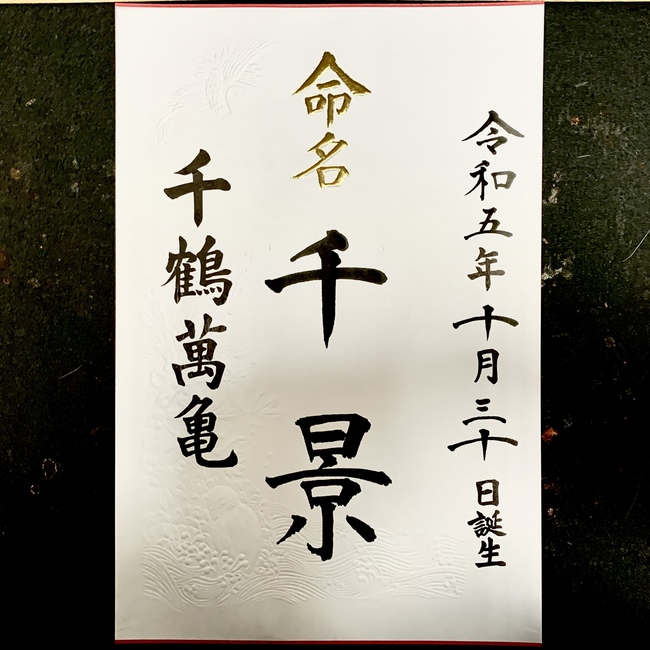 令和五年十月三十日誕生
命名
千景
千鶴萬亀